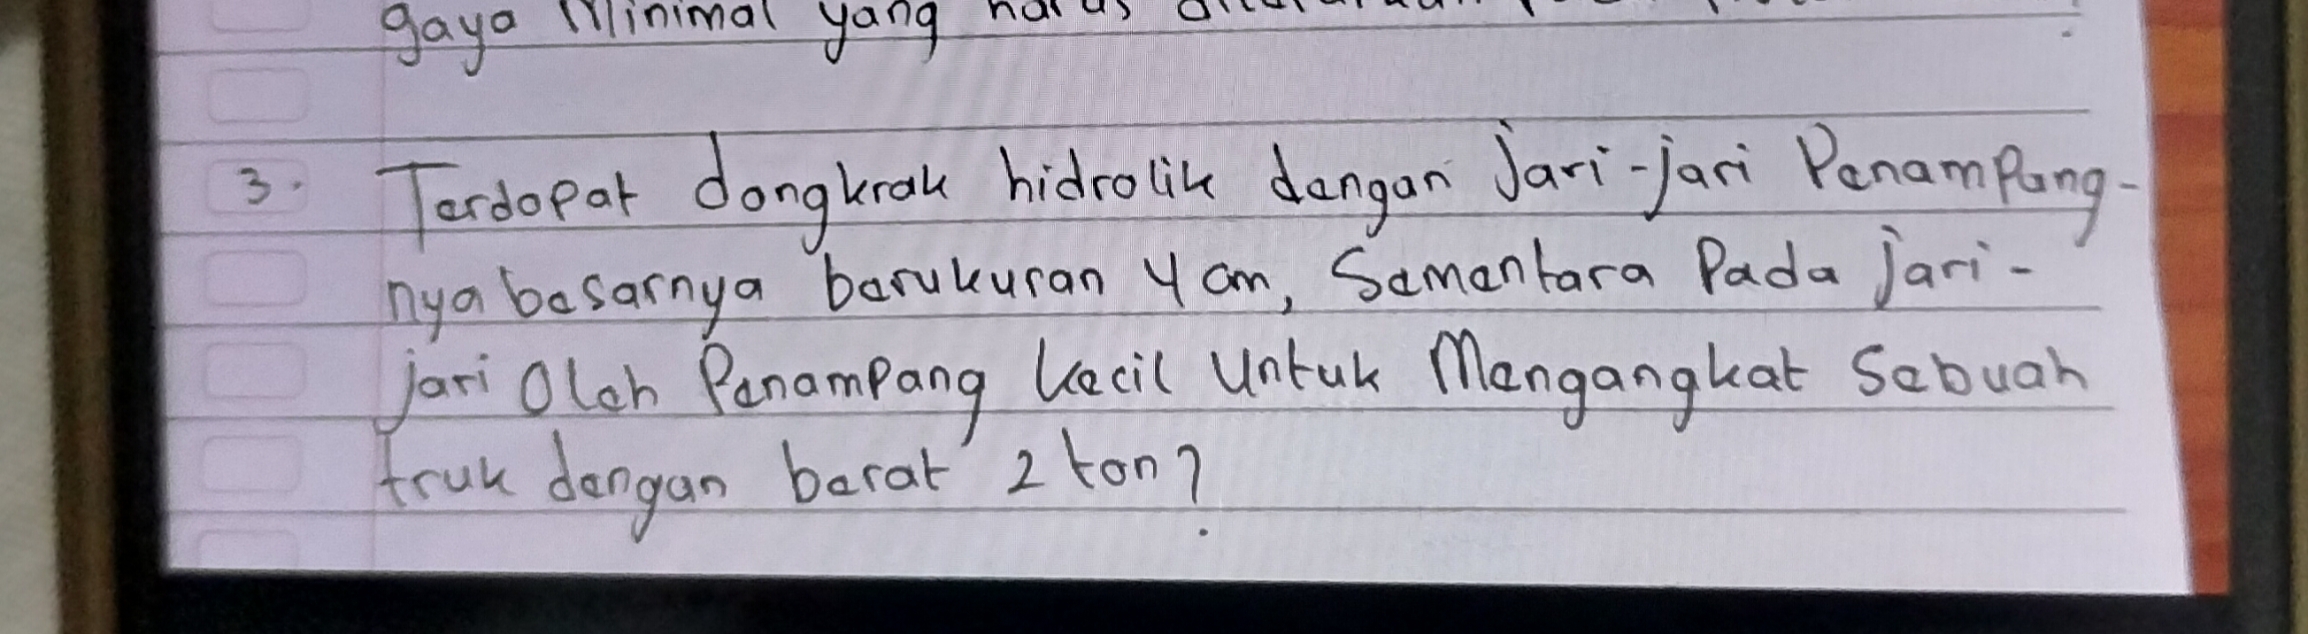 gaya Minimal yang harus
3. Terdapat dongkrak hidrolik dengan Jari-jari Penampang-
nya besarnya berukuran 4 cm, Sementara Pada jari-
jari Oleh Penampang kecil Untuk Mengangkat Sebuah
truk dengan berat 2 ton?